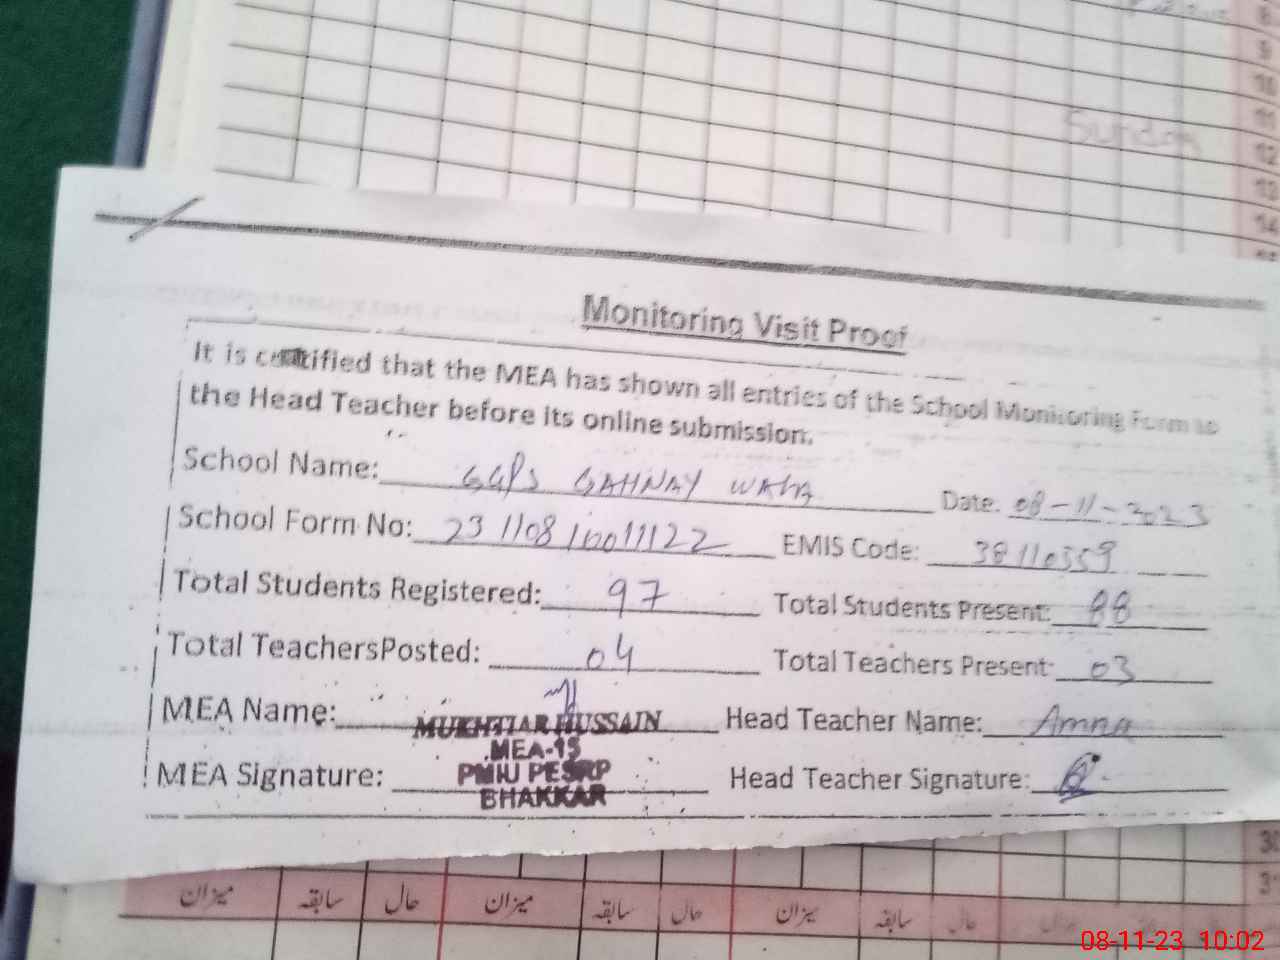 Sunday
Monitoring Visit Proof
It is certified that the MEA has shown all entries of the School Monitoring Form to
the Head Teacher before its online submission.
School Name: GGPS GAHNAY WALA Date: 08-11-2023
School Form No: 23110810011122 EMIS Code: 38110359
Total Students Registered: 97 Total Students Present: 88
Total TeachersPosted: 04 Total Teachers Present: 03
MEA Name: MUKHTIAR HUSSAIN Head Teacher Name: Amna
MEA-15
MEA Signature: PMIU PESRP Head Teacher Signature:
BHAKKAR
میزان سابقہ حال میزان سابقہ حال میزان سابقہ حال
08-11-23 10:02